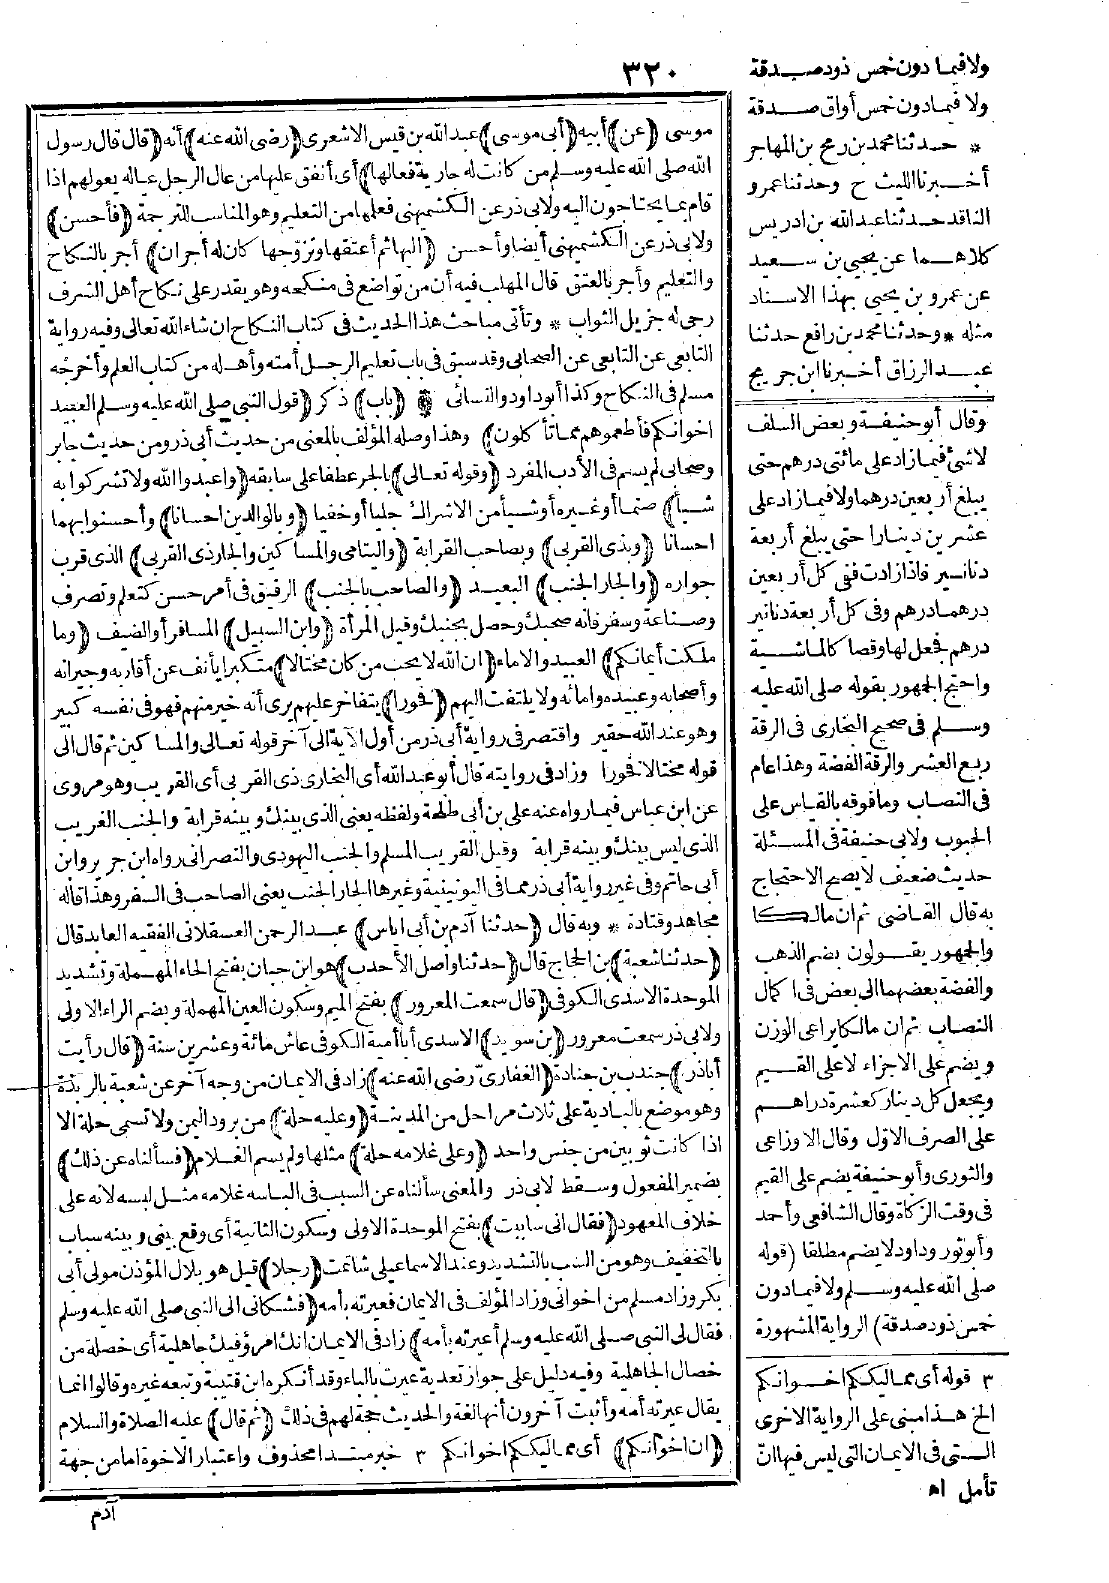 ٣٢٠
موسى (عن) أبيه (أبى موسى) عبد الله بن قيس الاشعرى (رضى الله عنه) أنه (قال قال رسول
الله صلى الله عليه وسلم من كانت له جارية فعالها) أى أنفق عليها من عال الرجل عياله يعولهم اذا
قام بما يحتاجون اليه ولابى ذر عن الكشميهنى فعلمها من التعليم وهو المناسب للترجمة (فأحسن)
ولابى ذر عن الكشميهنى أيضا وأحسن (اليها ثم أعتقها وتزوجها كان له أجران) أجر بالنكاح
والتعليم وأجر بالعتق قال المهلب فيه أن من تواضع فى منكحه وهو يقدر على نكاح أهل الشرف
رجى له جزيل الثواب * وتأتى مباحث هذا الحديث فى كتاب النكاح ان شاء الله تعالى وفيه رواية
التابعى عن التابعى عن الصحابى وقد سبق فى باب تعليم الرجل أمته وأهله من كتاب العلم وأخرجه
مسلم فى النكاح وكذا أبو داود والنسائى * (باب) ذكر (قول النبى صلى الله عليه وسلم العبيد
اخوانكم فأطعموهم مما تأكلون) وهذا وصله المؤلف بالمعنى من حديث أبى ذر ومن حديث جابر
وصحابى لم يسم فى الأدب المفرد (وقوله تعالى) بالجر عطفا على سابقه (واعبدوا الله ولا تشركوا به
شيأ) صنما أو غيره أو شيأ من الاشراك جليا أو خفيا (وبالوالدين احسانا) وأحسنوا بهما
احسانا (وبذى القربى) وبصاحب القرابة (واليتامى والمساكين والجار ذى القربى) الذى قرب
جواره (والجار الجنب) البعيد (والصاحب بالجنب) الرفيق فى أمر حسن كتعلم وتصرف
وصناعة وسفر فانه صحبك وحصل بجنبك وقيل المرأة (وابن السبيل) المسافر أو الضيف (وما
ملكت أيمانكم) العبيد والاماء (ان الله لا يحب من كان مختالا) متكبرا يأنف عن أقاربه وجيرانه
وأصحابه وعبيده وامائه ولا يلتفت اليهم (فخورا) يتفاخر عليهم يرى أنه خير منهم فهو فى نفسه كبير
وهو عند الله حقير واقتصر فى رواية أبى ذر من أول الآية الى آخر قوله تعالى والمساكين ثم قال الى
قوله مختالا فخورا وزاد فى روايته قال أبو عبد الله أى البخارى ذى القربى أى القريب وهو مروى
عن ابن عباس فيما رواه عنه على بن أبى طلحة ولفظه يعنى الذى بينك وبينه قرابة والجنب الغريب
الذى ليس بينك وبينه قرابة وقيل القريب المسلم والجنب اليهودى والنصرانى رواه ابن جرير وابن
أبى حاتم وفى غير رواية أبى ذر مما فى اليونينية وغيرها الجار الجنب يعنى الصاحب فى السفر وهذا قاله
مجاهد وقتادة * وبه قال (حدثنا آدم بن أبى اياس) عبد الرحمن العسقلانى الفقيه العابد قال
(حدثنا شعبة) بن الحجاج قال (حدثنا واصل الأحدب) هو ابن حيان بفتح الحاء المهملة وتشديد
الموحدة الاسدى الكوفى (قال سمعت المعرور) بفتح الميم وسكون العين المهملة وبضم الراء الاولى
ولابى ذر سمعت معرور (بن سويد) الاسدى أبا أمية الكوفى عاش مائة وعشرين سنة (قال رأيت
أباذر) جندب بن جنادة (الغفارى رضى الله عنه) زاد فى الايمان من وجه آخر عن شعبة بالربذة
وهو موضع بالبادية على ثلاث مراحل من المدينة (وعليه حلة) من برود اليمن ولا تسمى حلة الا
اذا كانت ثوبين من جنس واحد (وعلى غلامه حلة) مثلها ولم يسم الغلام (فسألناه عن ذلك)
بضمير المفعول وسقط لابى ذر والمعنى سألناه عن السبب فى الباسه غلامه مثل لبسه لانه على
خلاف المعهود (فقال انى ساببت) بفتح الموحدة الاولى وسكون الثانية أى وقع بينى وبينه سباب
بالتخفيف وهو من السب بالتشديد وعند الاسماعيلى شاتمت (رجلا) قيل هو بلال المؤذن مولى أبى
بكر وزاد مسلم من اخوانى وزاد المؤلف فى الايمان فعيرته بأمه (فشكانى الى النبى صلى الله عليه وسلم
فقال لى النبى صلى الله عليه وسلم أعيرته بأمه) زاد فى الايمان انك امرؤ فيك جاهلية أى خصلة من
خصال الجاهلية وفيه دليل على جواز تعدية عيرت بالباء وقد أنكره ابن قتيبة وتبعه غيره وقالوا انما
يقال عيرته أمه وأثبت آخرون أنها لغة والحديث حجة لهم فى ذلك (ثم قال) عليه الصلاة والسلام
(ان اخوانكم) أى مماليككم اخوانكم ٣ خبر مبتدا محذوف واعتبار الاخوة اما من جهة
آدم
ولا فيما دون خمس ذود صدقة
ولا فيما دون خمس أواق صدقة
* حدثنا محمد بن رمح بن المهاجر
أخبرنا الليث ح وحدثنا عمرو
الناقد حدثنا عبد الله بن ادريس
كلاهما عن يحيى بن سعيد
عن عمرو بن يحيى بهذا الاسناد
مثله * وحدثنا محمد بن رافع حدثنا
عبد الرزاق أخبرنا ابن جريج
وقال أبو حنيفة وبعض السلف
لا شئ فيما زاد على مائتى درهم حتى
يبلغ أربعين درهما ولا فيما زاد على
عشرين دينارا حتى يبلغ أربعة
دنانير فاذا زادت ففى كل أربعين
درهما درهم وفى كل أربعة دنانير
درهم فجعل لها وقصا كالماشية
واحتج الجمهور بقوله صلى الله عليه
وسلم فى صحيح البخارى فى الرقة
ربع العشر والرقة الفضة وهذا عام
فى النصاب وما فوقه بالقياس على
الحبوب ولابى حنيفة فى المسئلة
حديث ضعيف لا يصح الاحتجاج
به قال القاضى ثم ان مالكا
والجمهور يقولون بضم الذهب
والفضة بعضهما الى بعض فى اكمال
النصاب ثم ان مالكا يراعى الوزن
ويضم على الاجزاء لا على القيم
ويجعل كل دينار كعشرة دراهم
على الصرف الاول وقال الاوزاعى
والثورى وأبو حنيفة يضم على القيم
فى وقت الزكاة وقال الشافعى وأحمد
وأبو ثور وداود لا يضم مطلقا (قوله
صلى الله عليه وسلم ولا فيما دون
خمس ذود صدقة) الرواية المشهورة
٣ قوله أى مماليككم اخوانكم
الخ هذا مبنى على الرواية الاخرى
التى فى الايمان التى ليس فيها ان
تأمل اه